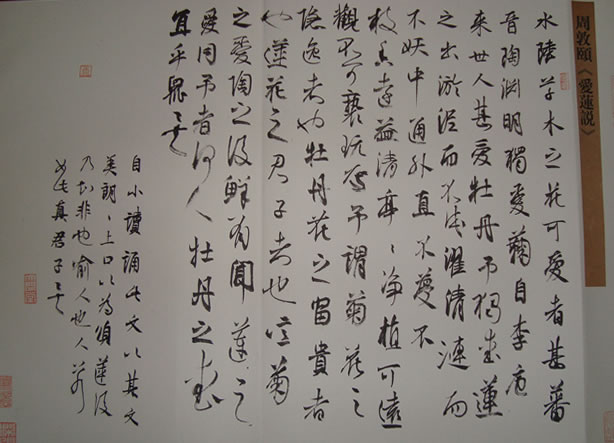 周敦頤《愛蓮説》
水陸草木之花可愛者甚蕃
晉陶淵明獨愛蘜自李唐
来世人甚愛牡丹予獨愛蓮
之出淤泥而不染濯清漣而
不妖中通外直不蔓不
枝香遠益清亭〻净植可遠
觀不可褻玩焉予謂菊花之
隐逸者也牡丹花之富貴者
也蓮花之君子者也噫菊
之愛陶之後鮮有聞蓮之
愛同予者何人牡丹之愛
宜乎眾矣
自小讀誦此文以其文
美朗〻上口以為頌蓮後
乃知非也喻人也人若
如此真君子矣